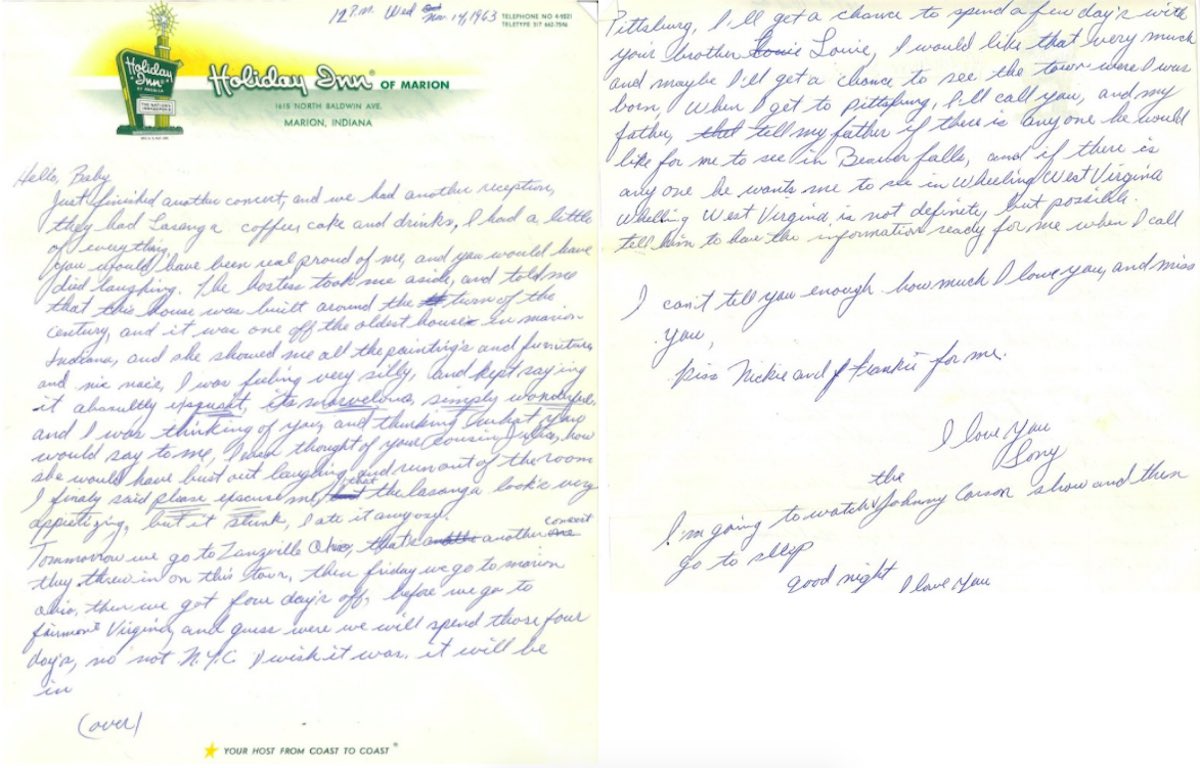 12 P.M. Wed Nov 14, 1963
TELEPHONE NO 4-9521
TELETYPE 317 662-7596
Holiday Inn
OF AMERICA
Holiday Inn® OF MARION
1615 NORTH BALDWIN AVE.
MARION, INDIANA
Hello, Baby
Just finished another concert, and we had another reception,
they had Lasanga coffee cake and drinks, I had a little
of everything.
You would have been real proud of me, and you would have
died laughing. The hostess took me aside, and told me
that this house was built around the turn of the
century, and it was one off the oldest houses in marion
Indiana, and she showed me all the painting's and furniture
and nic nac's, I was feeling very silly, and kept saying
it absoultly exquset, its marvelous, simply wonderful,
and I was thinking of you, and thinking what you
would say to me, I even thought of your cousin, how
she would have bust out laughing and run out of the room
I finaly said please excuse me, but that the lasanga look's very
appetizing, but it stunk, I ate it anyway.
Tommorrow we go to Zanzville Ohio, that's another another one concert
they threw in on this tour, then friday we go to marion
ohio, then we got four day's off, before we go to
fairmont Virginia, and guess were we will spend those four
day's, no not N.Y.C. I wish it was. it will be
in
(over)
YOUR HOST FROM COAST TO COAST®
Pittsburg, I'll get a chance to spend a few day's with
your brother Louie, I would like that very much
and maybe I'll get a chance to see the town were I was
born, When I get to Pittsburg, I'll call you, and my
father, tell my father if there is any one he would
like for me to see in Beaver falls, and if there is
any one he wants me to see in Wheeling West Virginia
Wheling West Virginia is not definite, but possible.
tell him to have the information ready for me when I call
I can't tell you enough how much I love you, and miss
you,
Kiss Nickie and Frankie for me.
I love You
Tony
I'm going to watch the Johnny Carson show and then
go to sleep
good night I love you